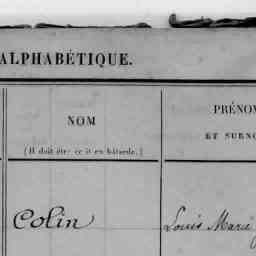 ALPHABÉTIQUE.
NOM
(Il doit être écrit en bâtarde.)
PRÉNO
ET SURNO
Colin
Louis Marie